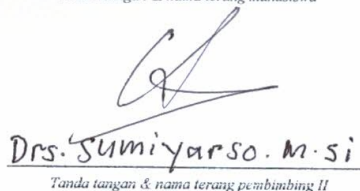 Drs. Sumiyarso. M. si
Tanda tangan & nama terang pembimbing II